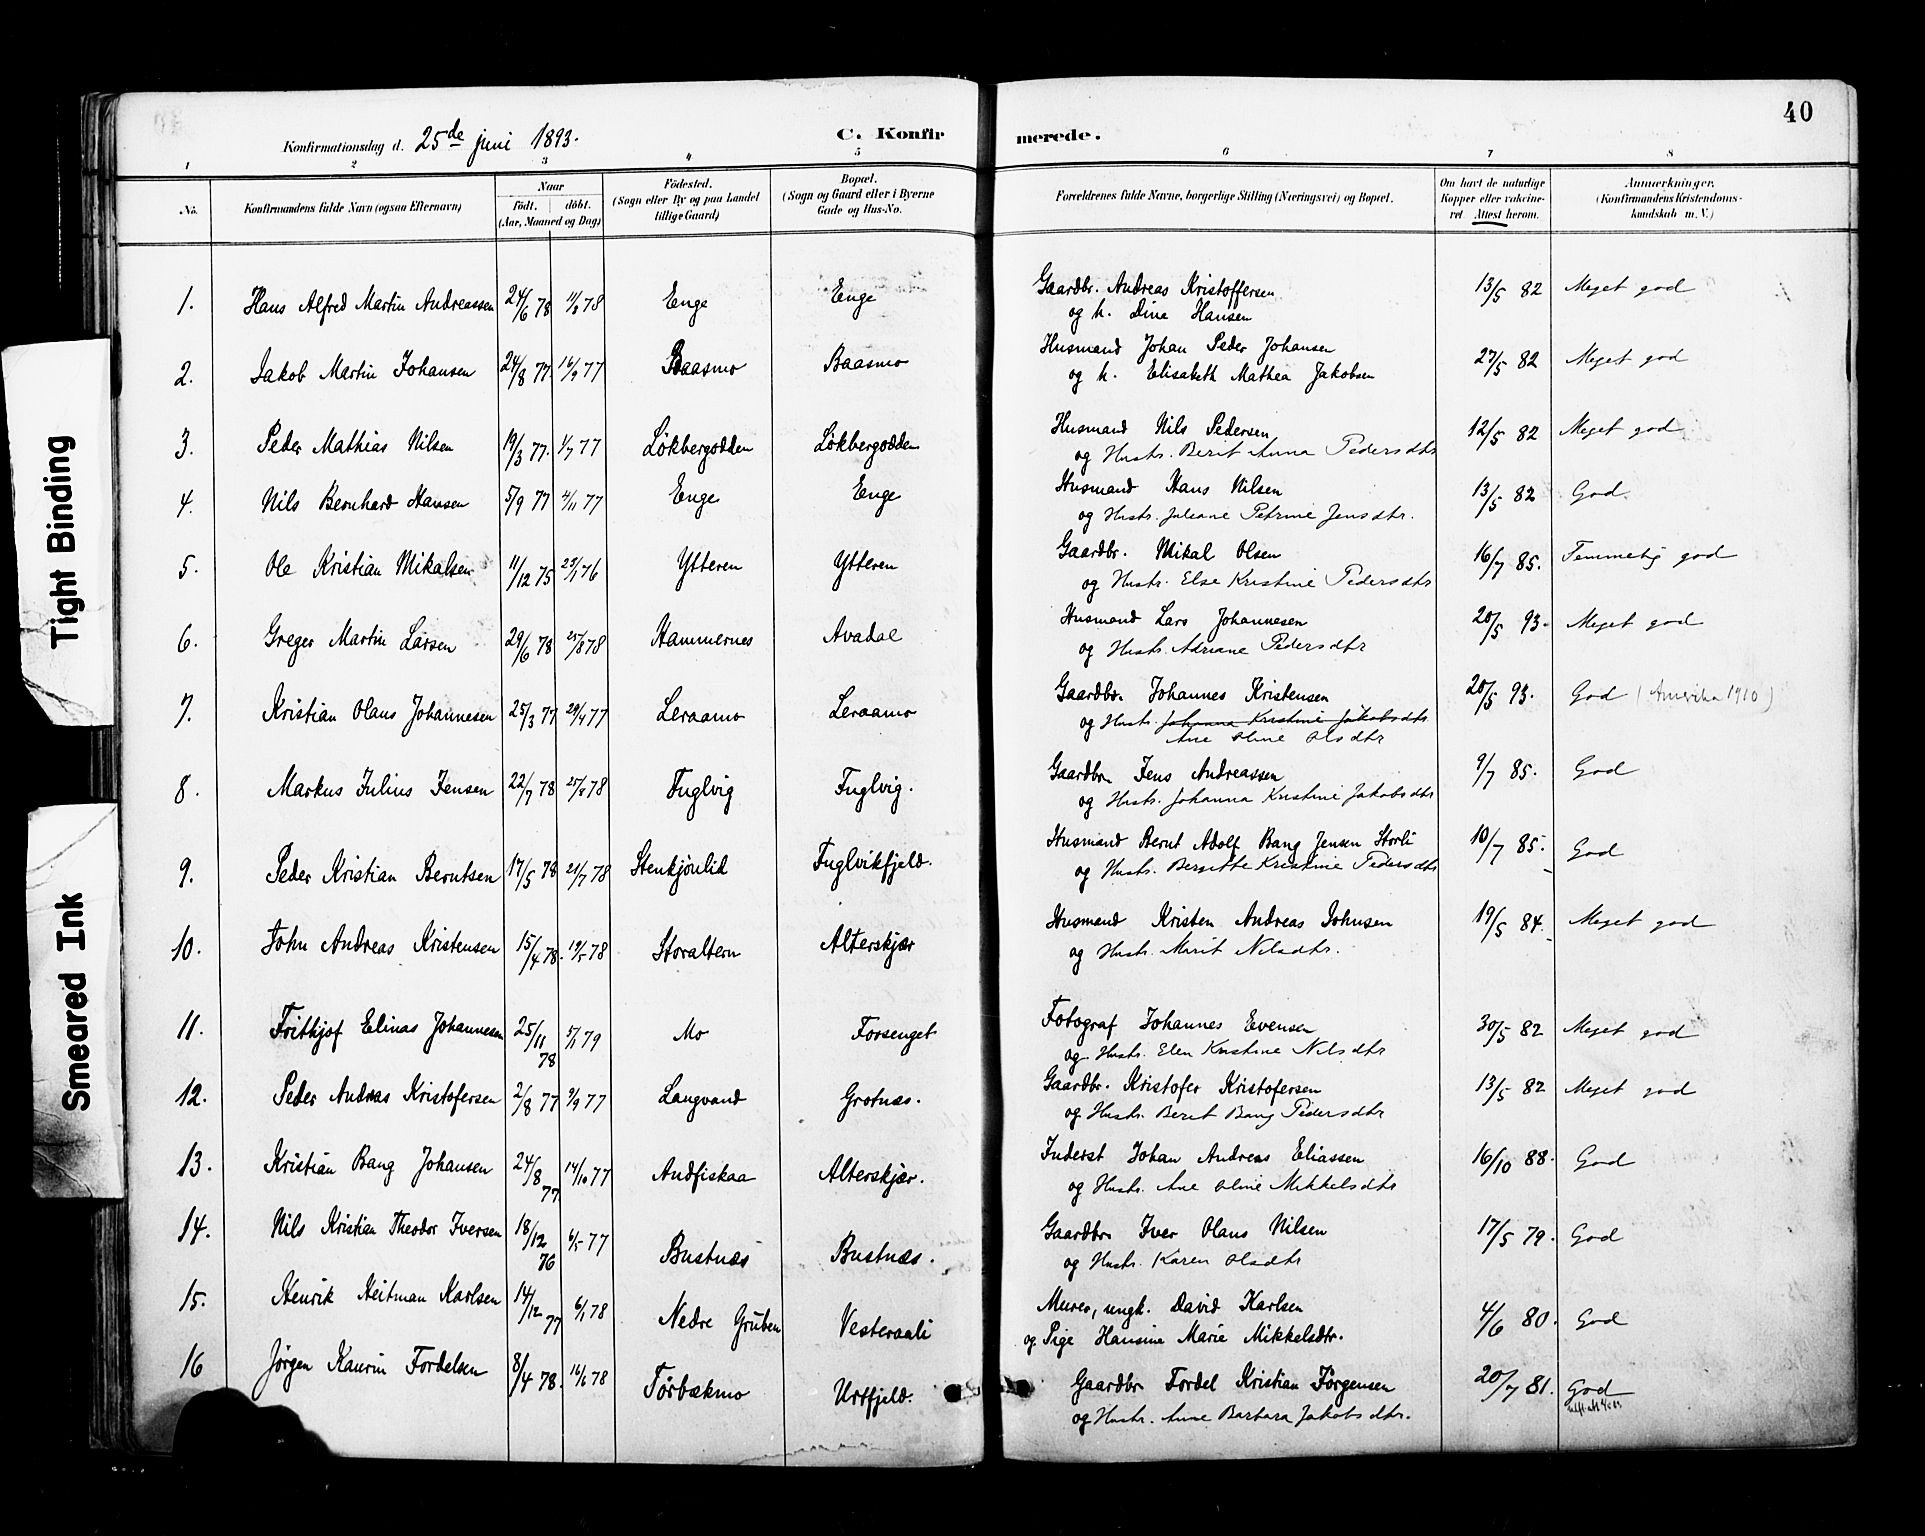 40
Konfirmationsdag d. 25de juni 1893.
C. Konfirmerede.
1 2 3 4 5 6 7 8
No.
Konfirmandens fulde Navn (ogsaa Efternavn)
Naar
födt. döbt.
(Aar, Maaned og Dag)
Födested.
(Sogn eller By og paa Landet
tillige Gaard)
Bopæl.
(Sogn og Gaard eller i Byerne
Gade og Hus-No.
Forældrenes fulde Navne, borgerlige Stilling (Næringsvei) og Bopæl.
Om havt de naturlige
Kopper eller vakcine-
ret. Attest herom.
Anmærkninger.
(Konfirmandens Kristendoms-
kundskab m. V.)
1. Hans Alfred Martin Andreassen 24/6 78 11/8 78 Enge Enge Gaardbr. Andreas Kristoffersen 13/5 82 Meget god
og h. Dina Hansen
2. Jakob Martin Johansen 24/8 77. 16/9 77 Baasmo Baasmo Husmand Johan Peder Johansen 27/5 82 Meget god
og h. Elisabeth Mathea Jakobsen
3. Peder Mathias Nilsen 19/3 77. 1/7 77 Løkbergodden Løkbergodden Husmand Nils Pedersen 12/5 82 Meget god
og Hustr. Berit Anna Pedersdtr
4. Nils Bernhard Hansen 5/9 77 4/11 77 Enge Enge Husmand Hans Nilsen 13/5 82 God.
og Hustr. Juliane Petrine Jensdtr.
5. Ole Kristian Mikalsen 11/12 75 23/1 76 Ytteren Ytteren Gaardbr. Mikal Olsen 16/7 85. Temmelig god
og Hustr. Else Kristine Pedersdtr
6. Greger Martin Larsen 29/6 78 25/8 78 Hammernes Avadal Husmand Lars Johannesen 20/5 93. Meget god
og Hustr. Adriane Pedersdtr
7. Kristian Olaus Johannesen 25/3 77 29/4 77 Leraamo Leraamo Gaardbr. Johannes Kristensen 20/5 93. God (Amerika 1910)
og Hustr. Johanna Kristine Jakobsdtr
Ane Oline Olsdtr
8. Markus Julius Jensen 22/7 78 25/8 78 Fuglvig Fuglvig. Gaardbr. Jens Andreassen 9/7 85. God
og Hustr. Johanna Kristine Jakobsdtr
9. Peder Kristian Berntsen 17/5 78 21/7 78 Stenkjønlid Fuglvikfjeld. Husmand Bernt Adolf Bang Jensen Storli 10/7 85. God
og Hustr. Bergitte Kristine Pedersdtr
10. John Andreas Kristensen 15/4 78. 19/5 78 Storaltern Alterskjær Husmand Kristen Andreas Johnsen 19/5 84. Meget god
og Hustr. Marit Nilsdtr.
11. Frithjof Elinas Johannesen 25/11 78 5/1 79 Mo Forsenget Fotograf Johannes Evensen 30/5 82 Meget god
og Hustr. Elen Kristine Nilsdtr
12. Peder Andreas Kristofersen 2/8 77 9/9 77 Langvand Grotnæs. Gaardbr. Kristofer Kristofersen 13/5 82 Meget god
og Hustr. Berit Bang Pedersdtr
13. Kristian Bang Johansen 24/8 77 14/10 77 Andfiskaa Alterskjær. Inderst Johan Andreas Eliassen 16/10 88. God
og Hustr. Ane Oline Mikkelsdtr
14. Nils Kristian Theodor Iversen 18/12 76 6/5 77 Bustnæs Bustnæs. Gaardbr. Iver Olaus Nilsen 17/5 79. God
og Hustr. Karen Olsdtr
15. Henrik Heitman Karlsen 14/12 77 6/1 78 Nedre Gruben Vesteraali Murer, ungk. David Karlsen 4/6 80. God
og Pige Hansine Marie Mikkelsdtr.
16 Jørgen Kaurin Fordelsen 8/4 78. 16/6 78 Tørbækmo Urtfjeld. Gaardbr. Fordel Kristian Jørgensen 20/7 81. God
og Hustr. Anne Barbara Jakobsdtr.
Tight Binding
Smeared Ink